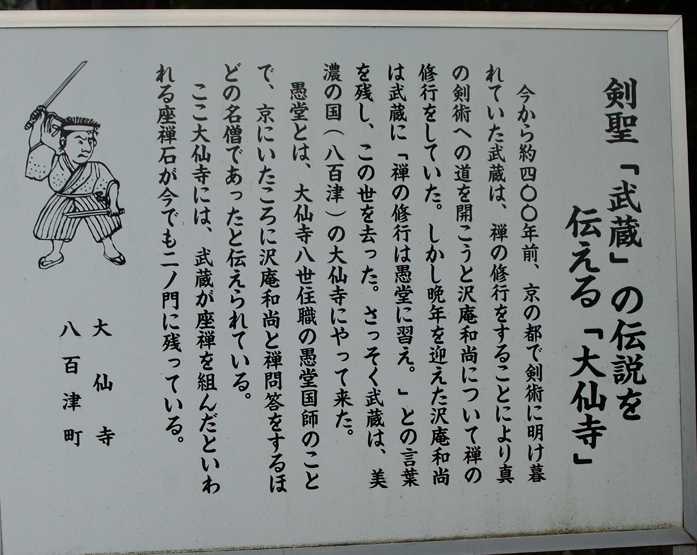 剣聖「武蔵」の伝説を
伝える「大仙寺」
今から約四〇〇年前、京の都で剣術に明け暮
れていた武蔵は、禅の修行をすることにより真
の剣術への道を開こうと沢庵和尚について禅の
修行をしていた。しかし晩年を迎えた沢庵和尚
は武蔵に「禅の修行は愚堂に習え。」との言葉
を残し、この世を去った。さっそく武蔵は、美
濃の国（八百津）の大仙寺にやって来た。
愚堂とは、大仙寺八世住職の愚堂国師のこと
で、京にいたころに沢庵和尚と禅問答をするほ
どの名僧であったと伝えられている。
ここ大仙寺には、武蔵が座禅を組んだといわ
れる座禅石が今でも二ノ門に残っている。
大仙寺
八百津町